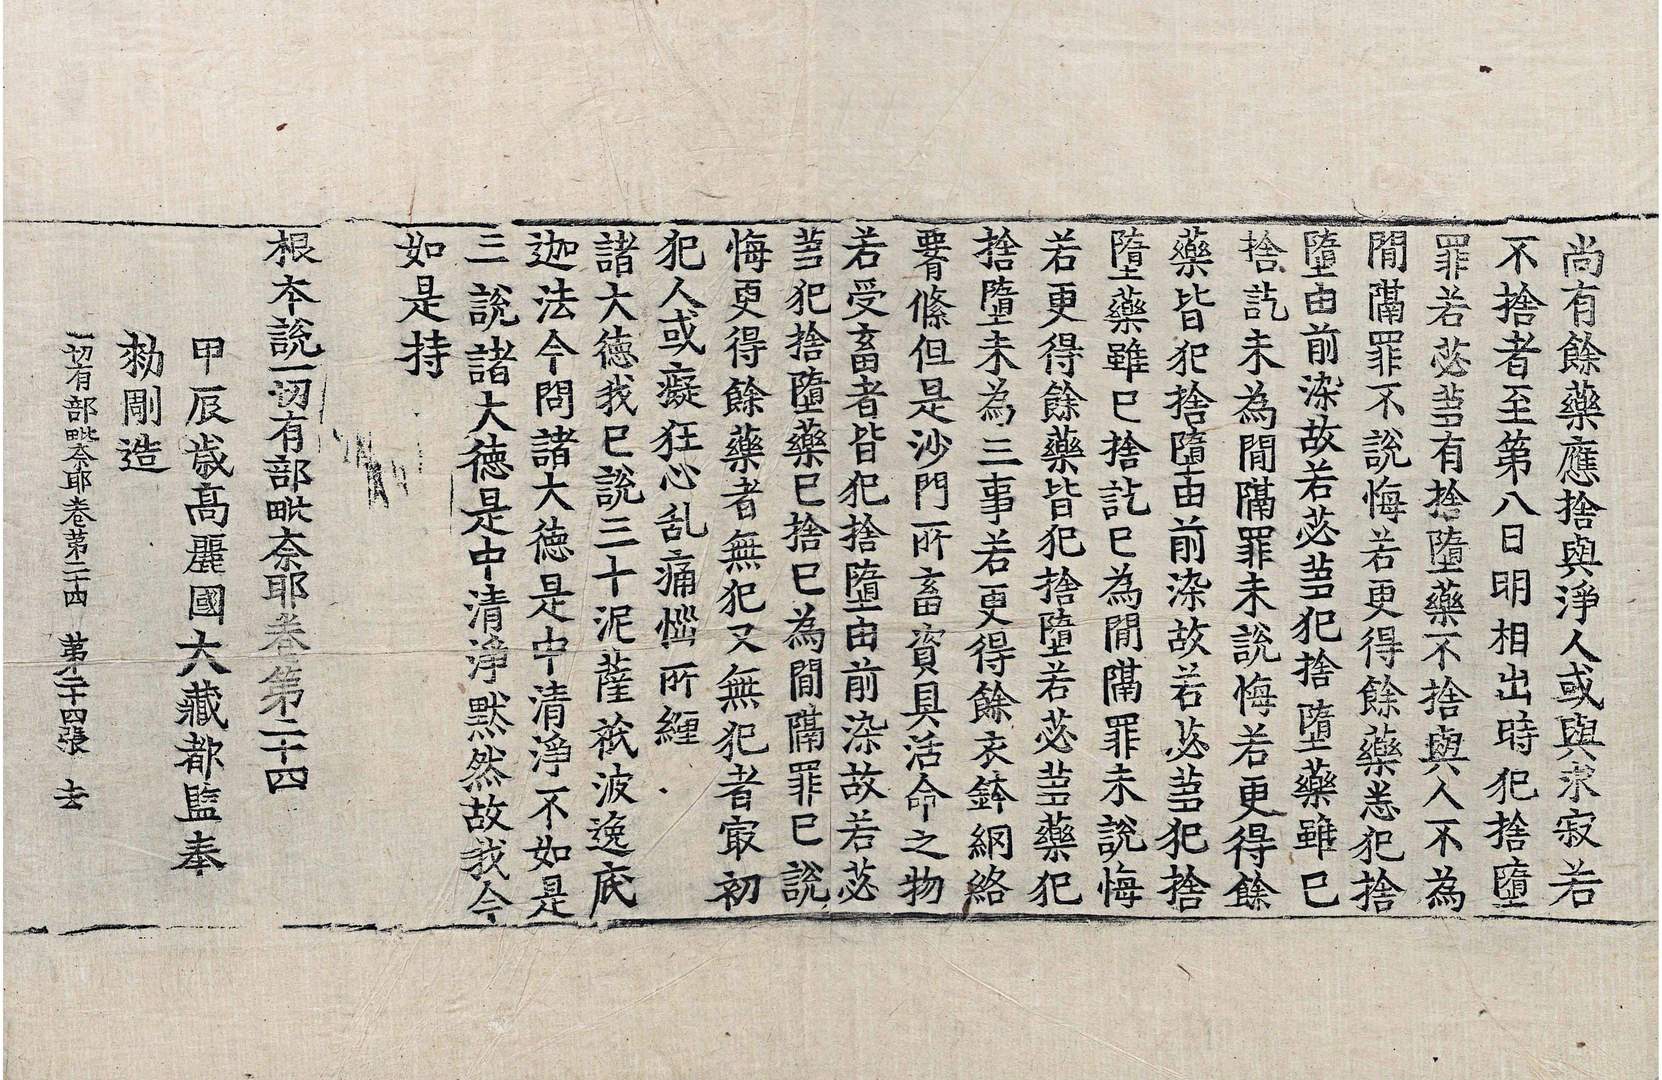 尚有餘藥應捨與淨人或與求寂若
不捨者至第八日明相出時犯捨墮
罪若苾芻有捨墮藥不捨與人不為
閒隔罪不說悔若更得餘藥悉犯捨
墮由前染故若苾芻犯捨墮藥雖已
捨訖未為閒隔罪未說悔若更得餘
藥皆犯捨墮由前染故若苾芻犯捨
墮藥雖已捨訖已為閒隔罪未說悔
若更得餘藥皆犯捨墮若苾芻藥犯
捨墮未為三事若更得餘衣鉢網絡
𦝫絛但是沙門所畜資具活命之物
若受畜者皆犯捨墮由前染故若苾
芻犯捨墮藥已捨已為閒隔罪已說
悔更得餘藥者無犯又無犯者㝡初
犯人或癡狂心乱痛惱所纏
諸大德我已說三十泥薩祇波逸底
迦法今問諸大德是中清淨不如是
三說諸大德是中清淨默然故我今
如是持
根本說一切有部毗奈耶卷第二十四
甲辰歲高麗國大藏都監奉
勑彫造
一切有部毗奈耶卷第二十四 第二十四張 去